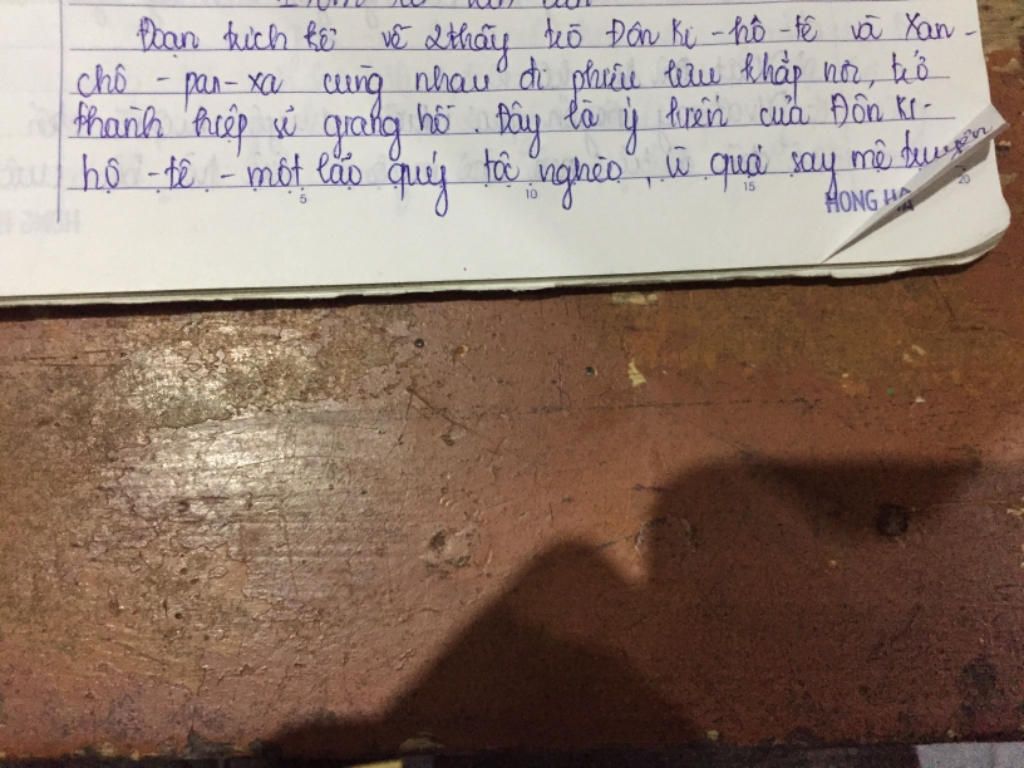 Đoạn trích kể về 2 thầy trò Đôn Ki - hô - tê và Xan -
chô - pan - xa cùng nhau đi phiêu lưu khắp nơi, trở
thành hiệp sĩ giang hồ. Đây là ý kiến của Đôn Ki -
hô - tê - một lão quý tộc nghèo, vì quá say mê truyện
5 10 15 20
HONG HA